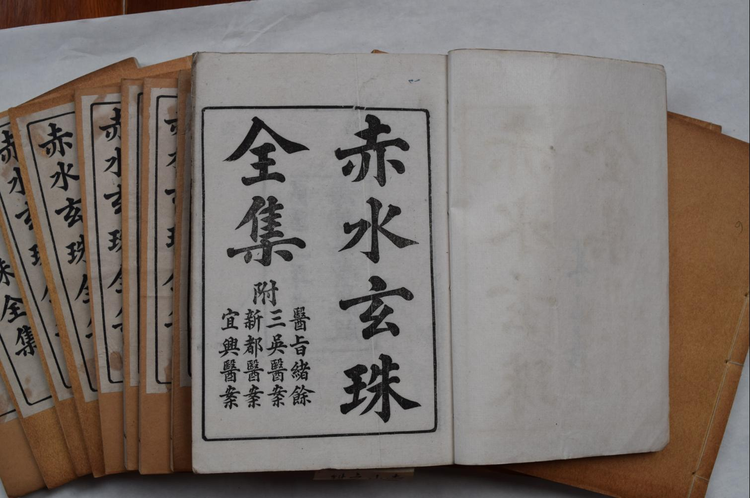 赤水玄珠
全集
附
醫旨緒餘
三吳醫案
新都醫案
宜興醫案
赤水玄珠全
赤水玄珠全
赤水玄珠全
珠全集